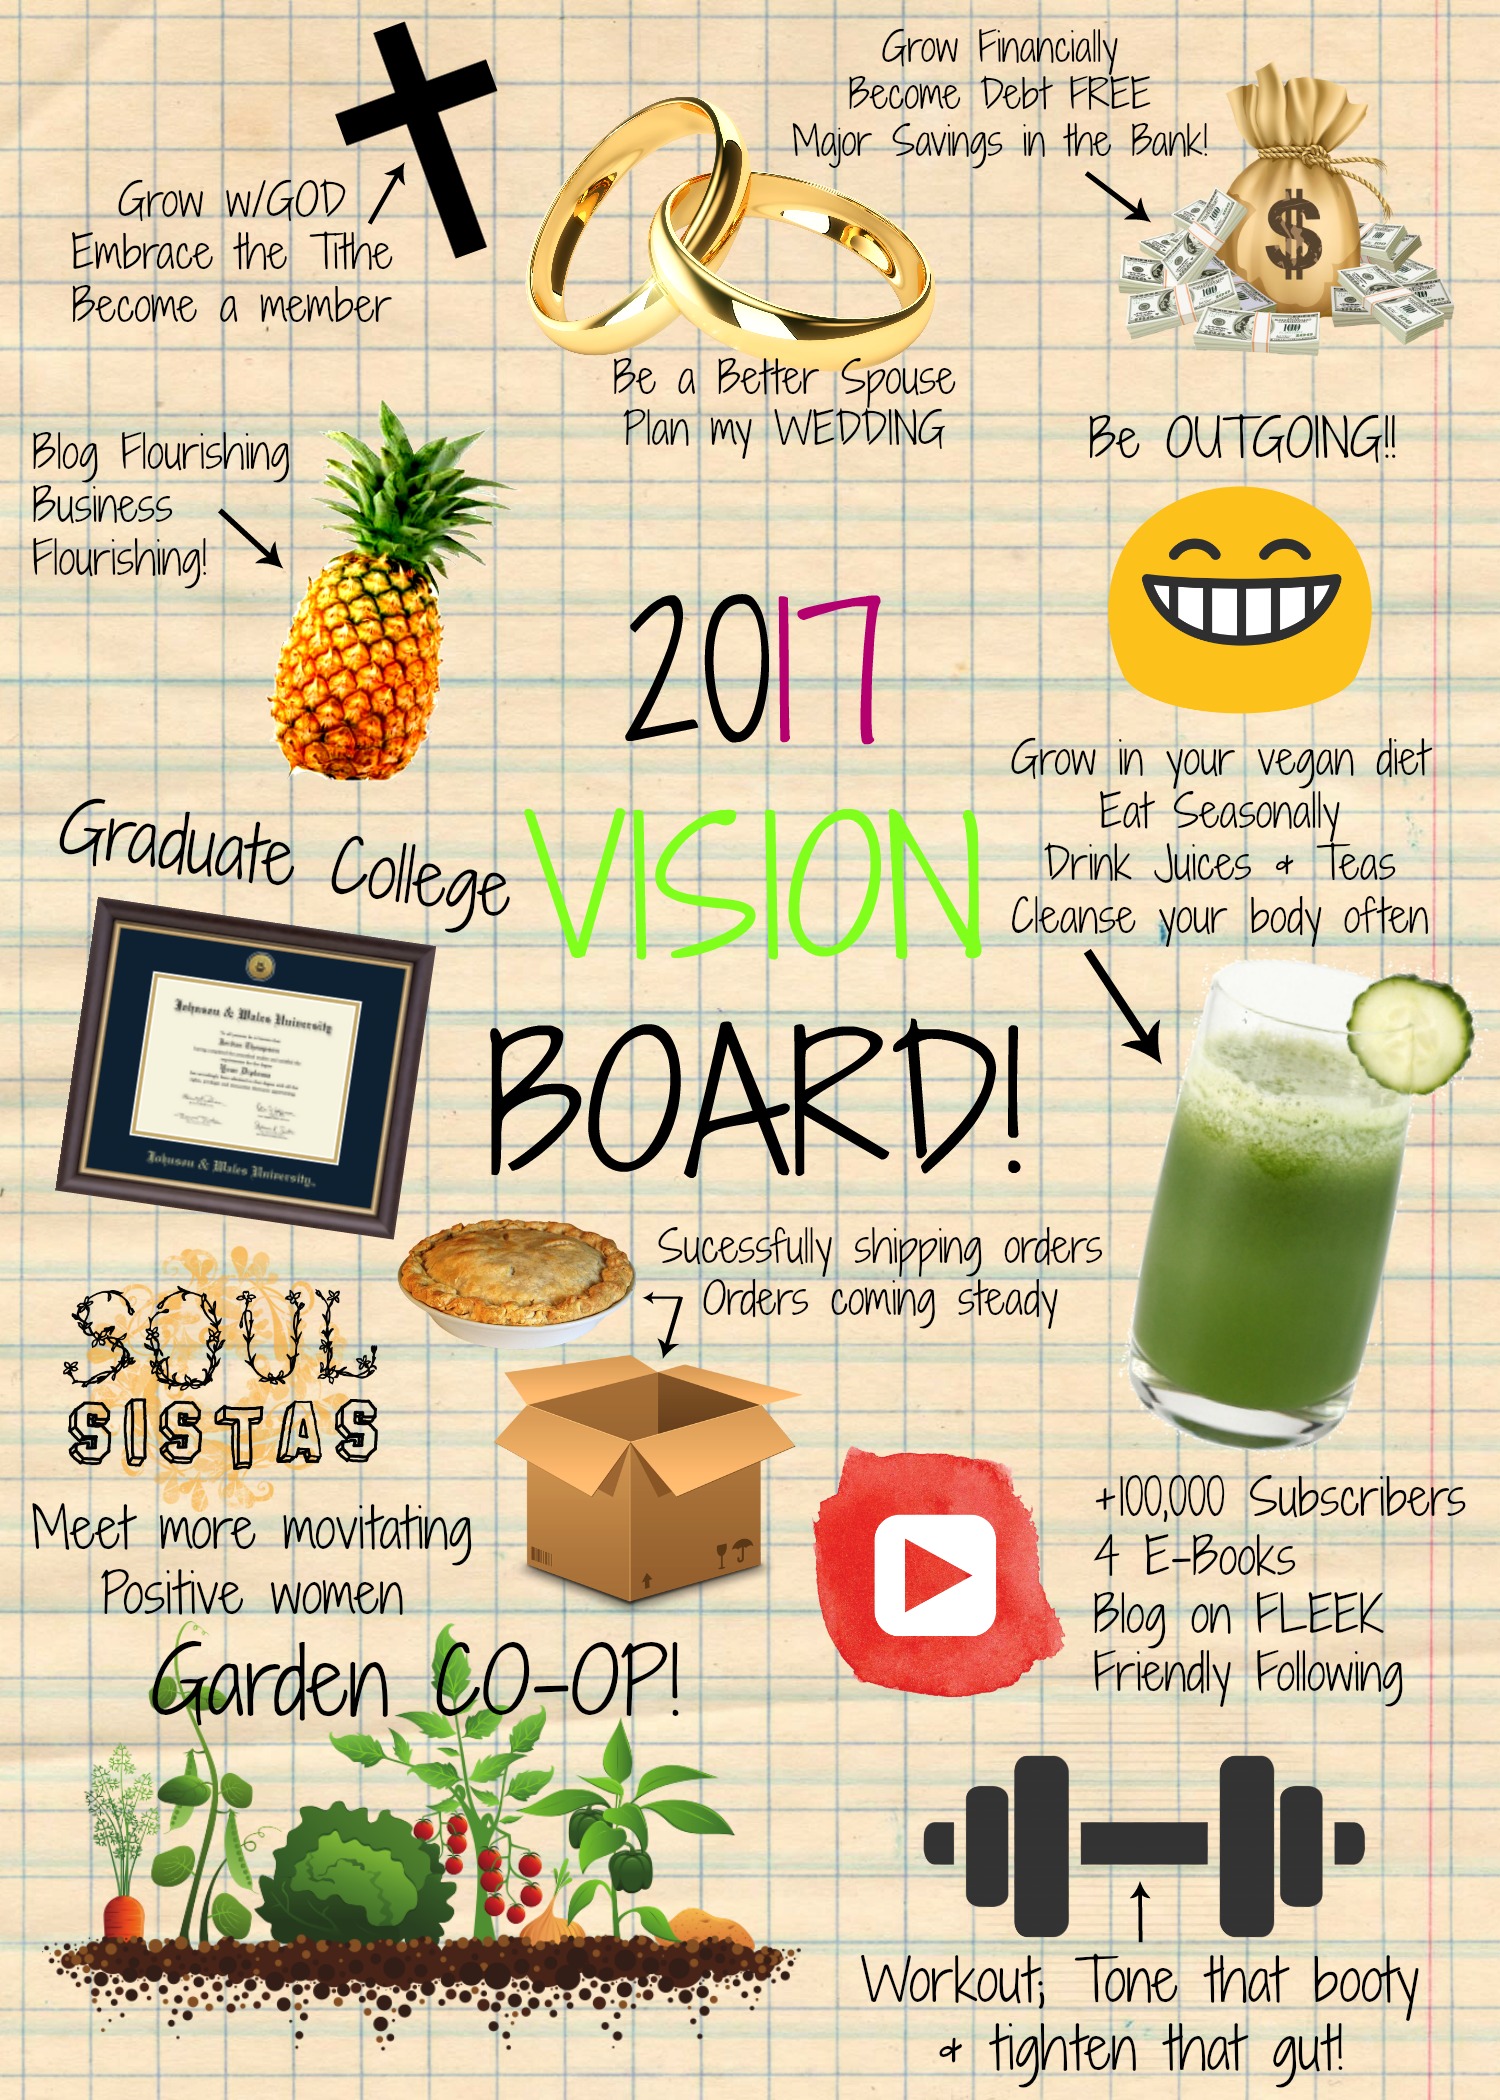 Grow w/GOD
Embrace the Tithe
Become a member
Grow Financially
Become Debt FREE
Major Savings in the Bank!
$
100
100
100
Be a Better Spouse
Plan my WEDDING
Blog Flourishing
Business
Flourishing!
Be OUTGOING!!
2017
VISION
BOARD!
Grow in your vegan diet
Eat Seasonally
Drink Juices & Teas
Cleanse your body often
Graduate College
Johnson & Wales University
Your Diploma
Johnson & Wales University
Sucessfully shipping orders
Orders coming steady
SOUL
SISTAS
Meet more movitating
Positive women
+100,000 Subscribers
4 E-Books
Blog on FLEEK
Friendly Following
Garden CO-OP!
Workout; Tone that booty
& tighten that gut!